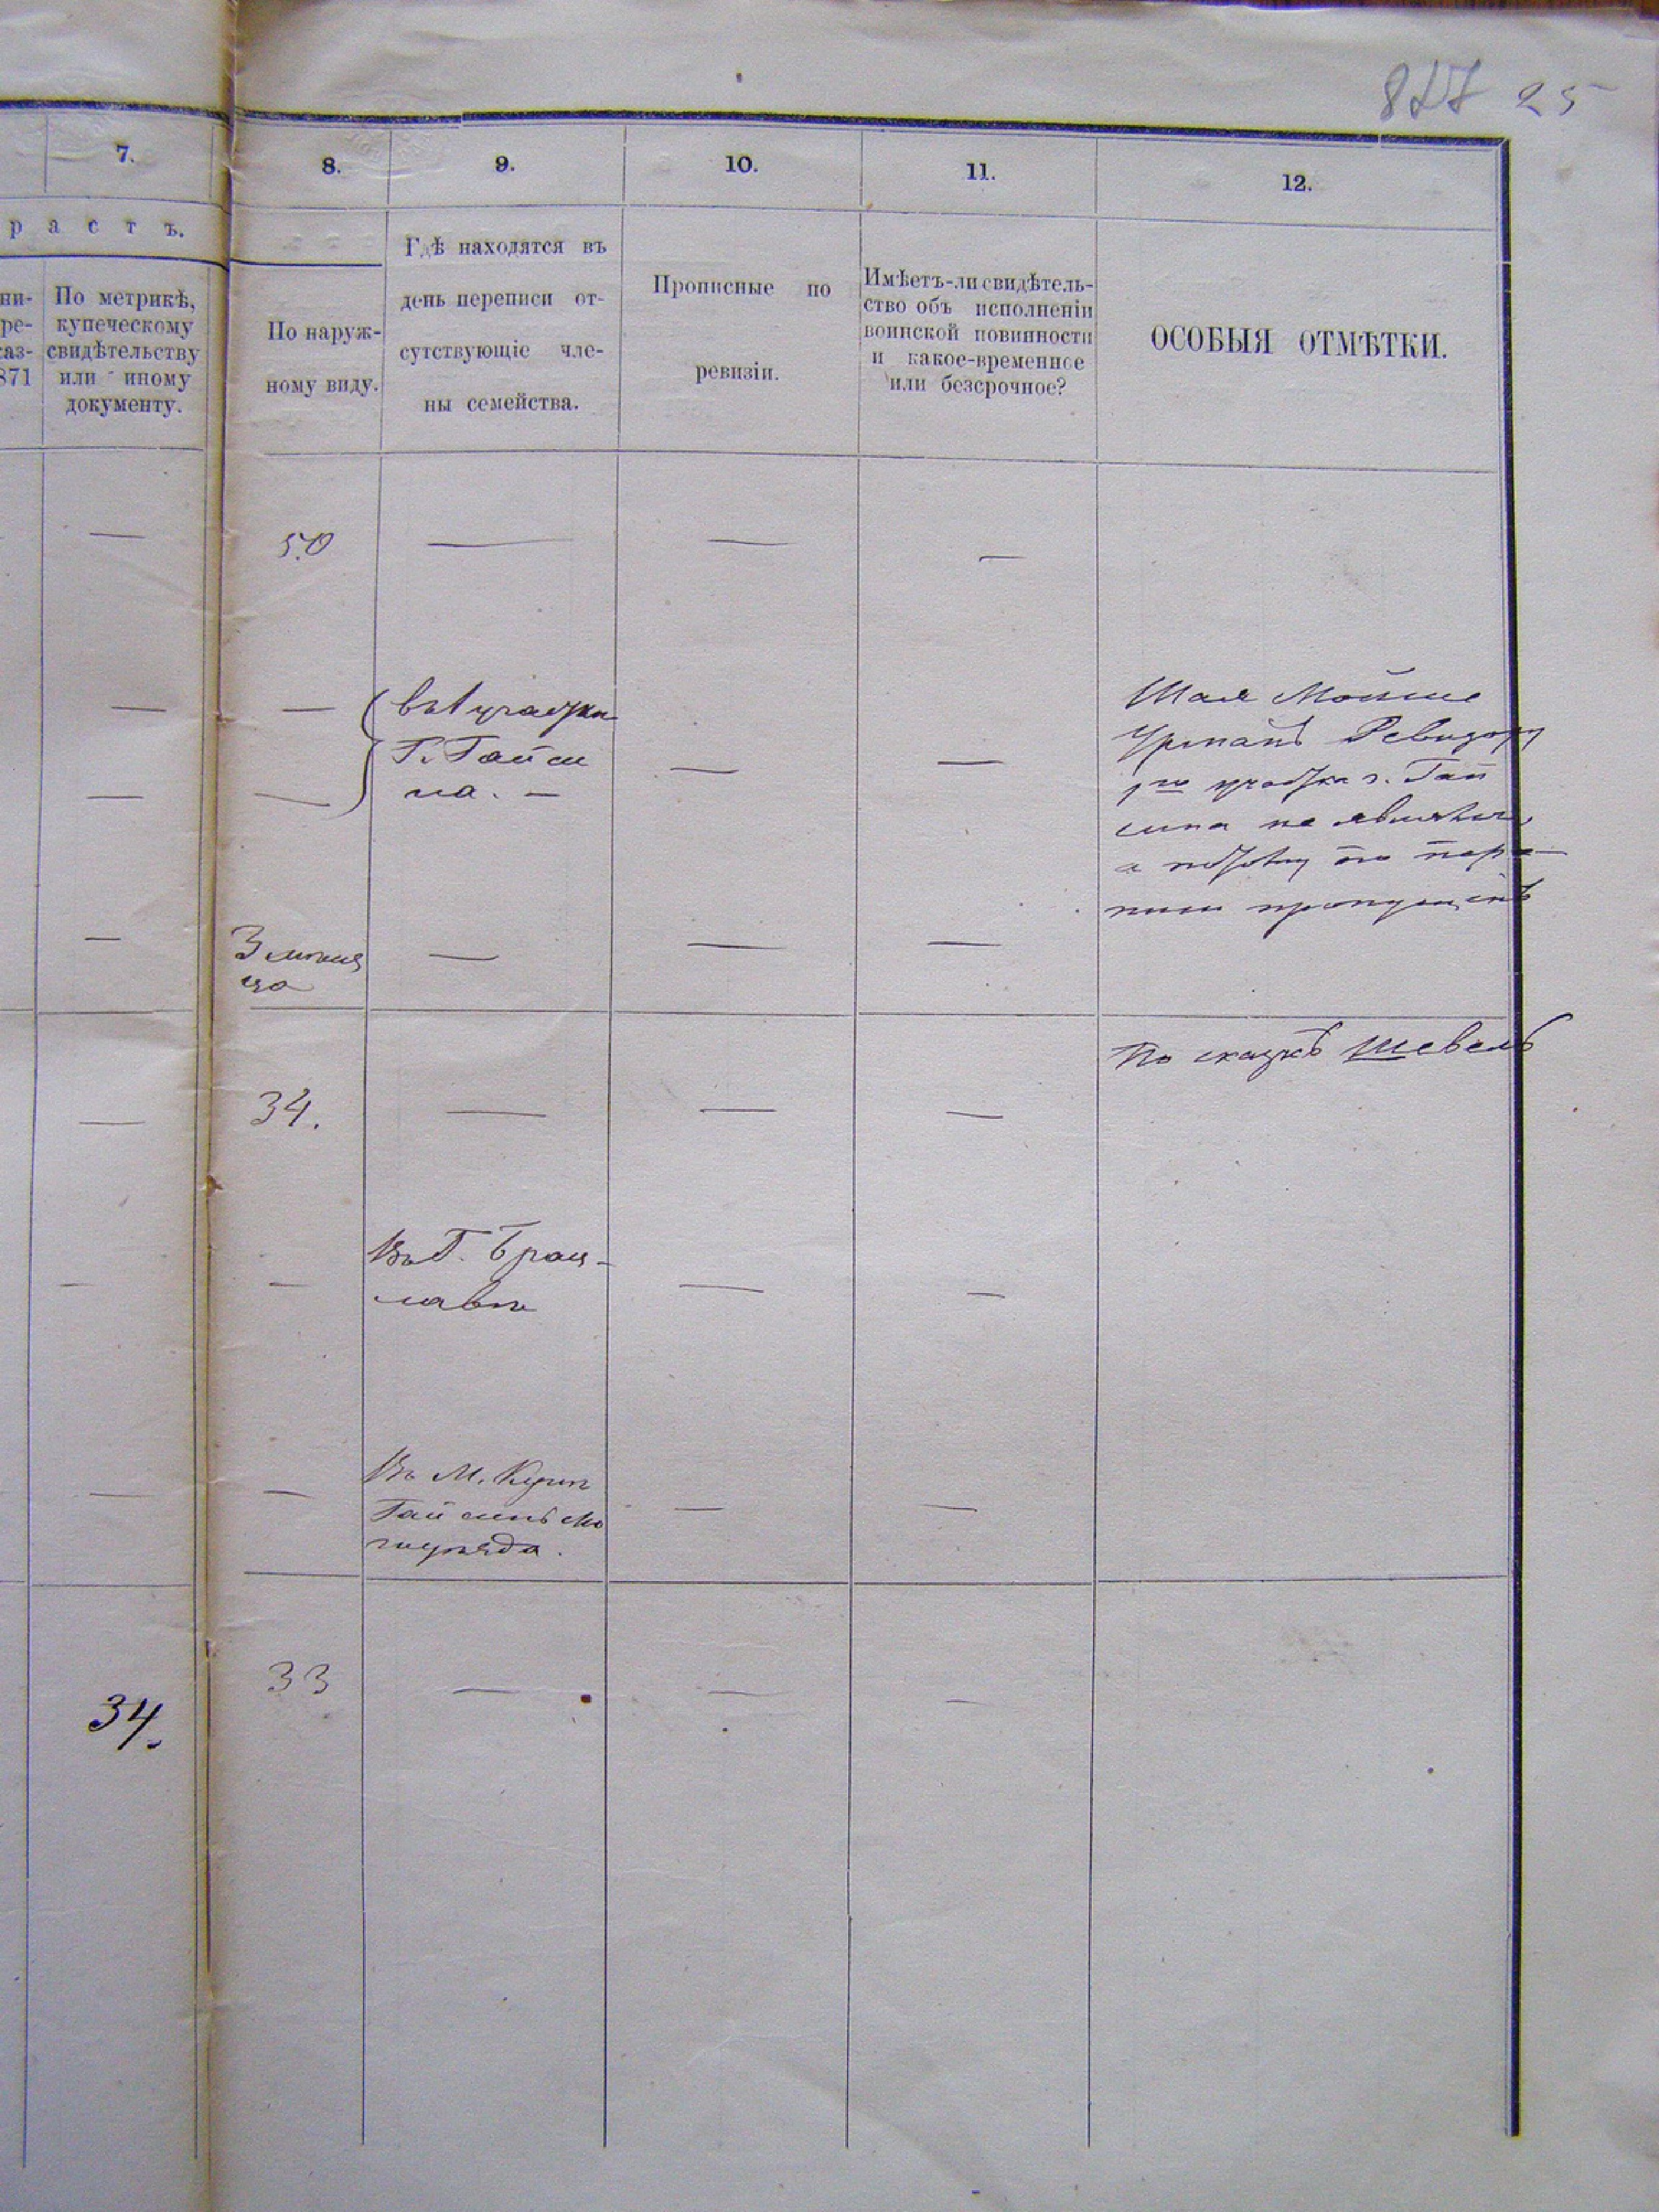 25
7.
8.
9.
10.
11.
12.
растъ.
ни-
ре-
каз-
871
По метрикѣ,
купеческому
свидѣтельству
или иному
документу.
По наруж-
ному виду.
Гдѣ находятся въ
день переписи от-
сутствующіе чле-
ны семейства.
Прописные по
ревизіи.
Имѣетъ-ли свидѣтель-
ство объ исполненіи
воинской повинности
и какое-временное
или безсрочное?
ОСОБЫЯ ОТМѢТКИ.
— 50 — — —
— — въ 1 участкѣ
Г. Гайси
— — на. — — —
Шая Мошко
Ревизору
1го участка г. Гай
сина не явился,
а потому
— 3 мѣся
ца — — —
По сказкѣ Шевель
— 34. — — —
— — Въ Г. Брац-
лавѣ — —
— — Въ М. Кунѣ
Гайсинско
го уѣзда. — —
34. 33 — — —